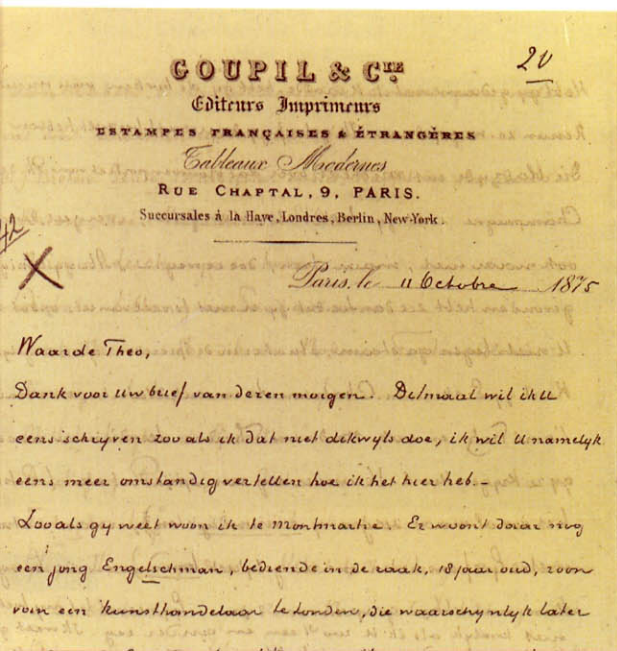 GOUPIL & CIE
20
Editeurs Imprimeurs
ESTAMPES FRANÇAISES & ÉTRANGÈRES
Tableaux Modernes
RUE CHAPTAL, 9, PARIS.
Succursales à la Haye, Londres, Berlin, New-York.
42
X
Paris, le 11 Octobre 1875
Waarde Theo,
Dank voor uw brief van dezen morgen. Ditmaal wil ik U
eens schrijven zoo als ik dat niet dikwyls doe, ik wil U namelyk
eens meer omstandig vertellen hoe ik het hier heb.-
Zooals gy weet woon ik te Montmartre. Er woont daar nog
een jong Engelschman, bediende in de zaak, 18 jaar oud, zoon
van een kunsthandelaar te Londen, die waarschynlyk later